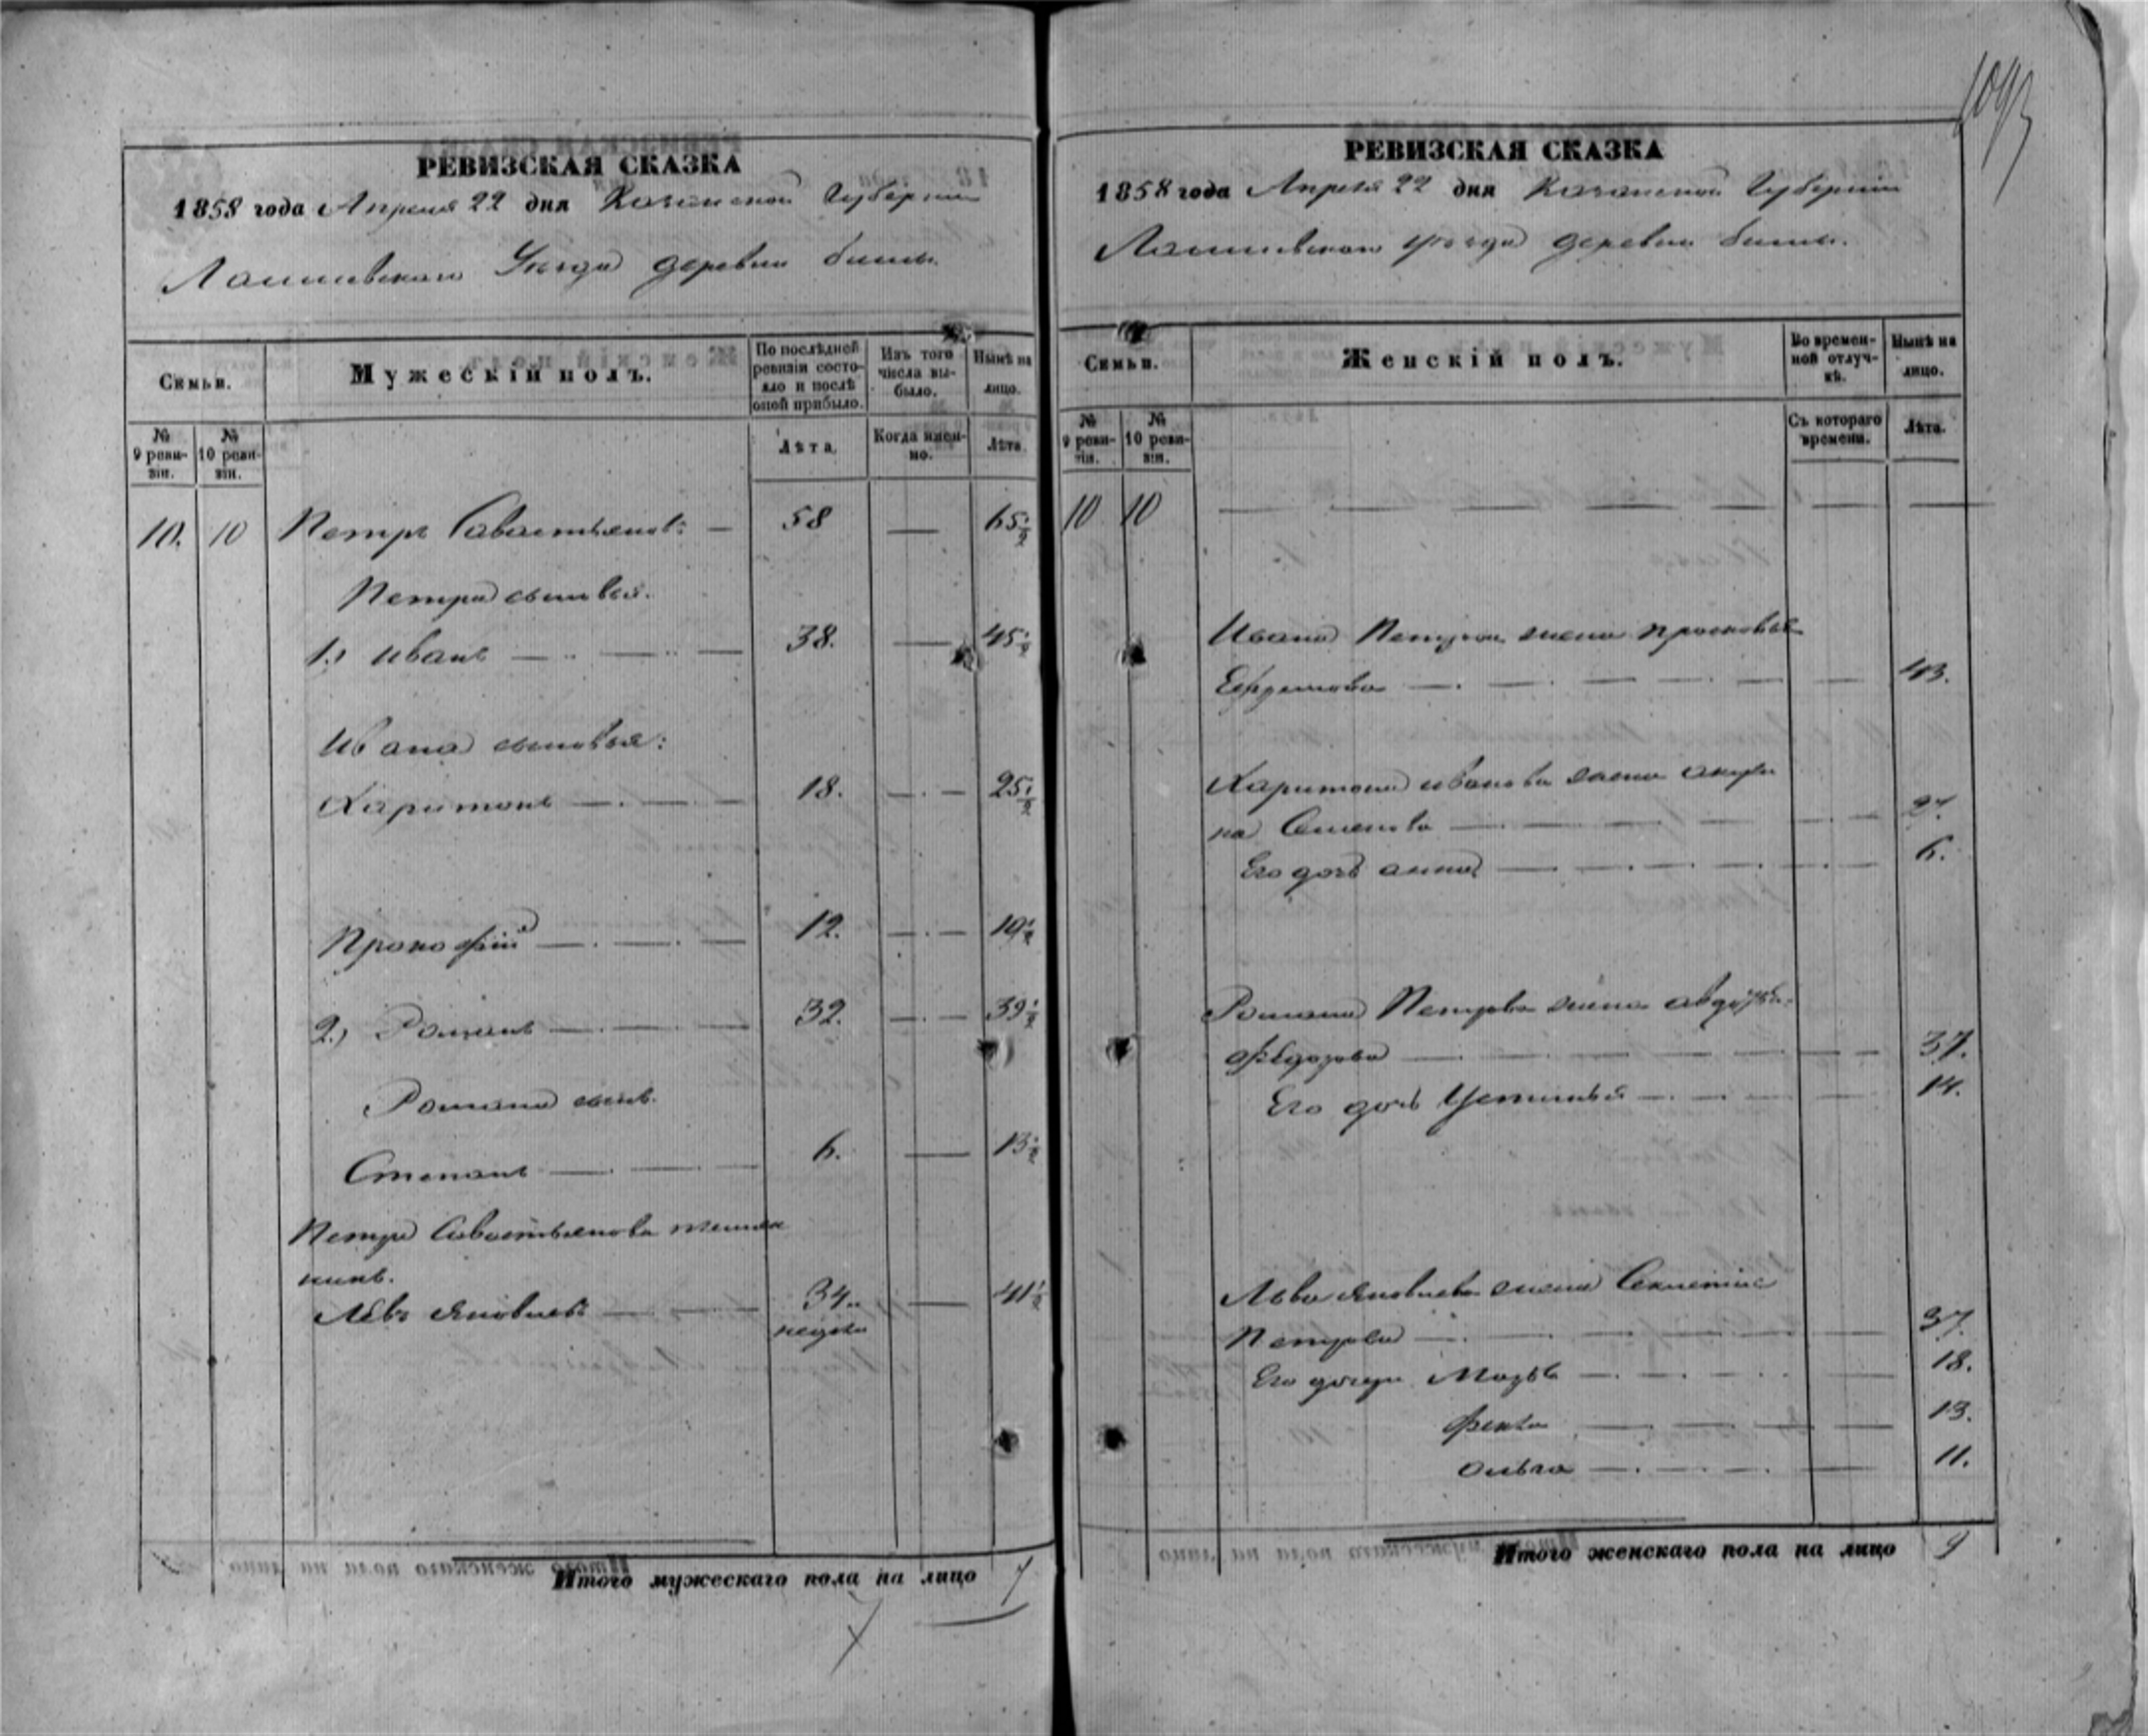 РЕВИЗСКАЯ СКАЗКА
1858 года Апреля 22 дня Казанской Губернии
Лаишевскаго Уѣзда деревни
Семьи.
Мужескій полъ.
По послѣдней ревизіи состояло и послѣ оной прибыло.
Изъ того числа выбыло.
Нынѣ на лицо.
№ 9 ревизіи.
№ 10 ревизіи.
Лѣта.
Когда именно.
Лѣта.
10. 10 Петръ Савастьяновъ: — 58 — 65 1/2
Петра сыновья.
1.) Иванъ — 38. — 45 1/2
Ивана сыновья:
Харитонъ — 18. — 25 1/2
Прокофій — 12. — 19 1/2
2.) Романъ — 32. — 39 1/2
Романа сынъ.
Степанъ — 6. — 13 1/2
Петра Савостьянова
Левъ Яковлевъ — 34. — 41 1/2
Итого мужескаго пола на лицо 7
РЕВИЗСКАЯ СКАЗКА
1858 года Апреля 22 дня Казанской Губерніи
Лаишевскаго уѣзда деревни
Семьи.
Женскій полъ.
Во временной отлучкѣ.
Нынѣ на лицо.
№ 9 ревизіи.
№ 10 ревизіи.
Съ котораго времени.
Лѣта.
10 10 —
Ивана Петрова жена Просковья
Ефремова — 43.
Харитона иванова жена акули
на Семенова — 27.
Его дочь анна — 6.
Романа Петрова жена авдотья
Федорова — 37.
Его дочь Устинья — 14.
Льва Яковлева жена
Петрова — 37.
Его дочери — 18.
Фекла — 13.
Ольга — 11.
Итого женскаго пола на лицо 9